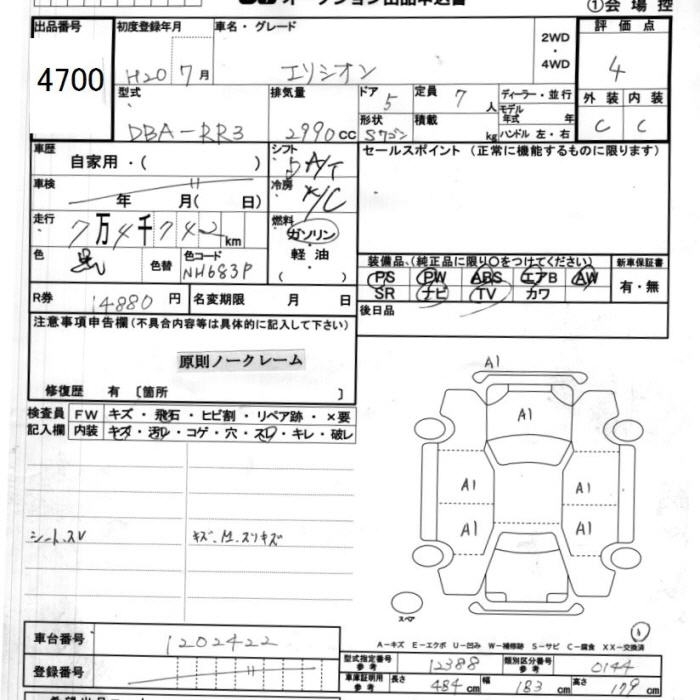 オークション出品申込書
①会場控
出品番号 初度登録年月 車名・グレード 2WD・4WD 評価点
4700 H20 7月 エリシオン 4
型式 排気量 ドア 5 定員 7人 ディーラー・並行 外装 内装
DBA-RR3 2990cc 形状 Sワゴン 積載 kg モデル年式 年 C C
ハンドル 左・右
車歴 自家用・( ) シフト A/T セールスポイント(正常に機能するものに限ります)
車検 年 月( 日) 冷房 A/C
走行 7万4千742km 燃料 ガソリン・軽油( )
色 黒 色替 色コード NH683P
装備品、(純正品に限り○をつけてください) 新車保証書
PS PW ABS エアB AW 有・無
SR ナビ TV カワ
R券 14880円 名変期限 月 日 後日品
注意事項申告欄(不具合内容等は具体的に記入して下さい)
原則ノークレーム
修復歴 有 〔箇所 〕
検査員記入欄 FW キズ・飛石・ヒビ割・リペア跡・×要
内装 キズ・汚レ・コゲ・穴・スレ・キレ・破レ
シート.スレ
A1
A1
A1 A1
A1 A1
スペア
A-キズ E-エクボ U-凹み W-補修跡 S-サビ C-腐食 XX-交換済
車台番号 1202422
登録番号
型式指定番号 参考 12388 類別区分番号 参考 0144
車庫証明用 参考 長さ 484cm 幅 183cm 高さ 179cm